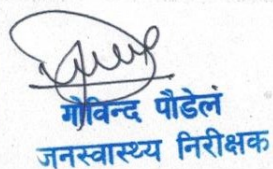 गोविन्द पौडेल
जनस्वास्थ्य निरीक्षक